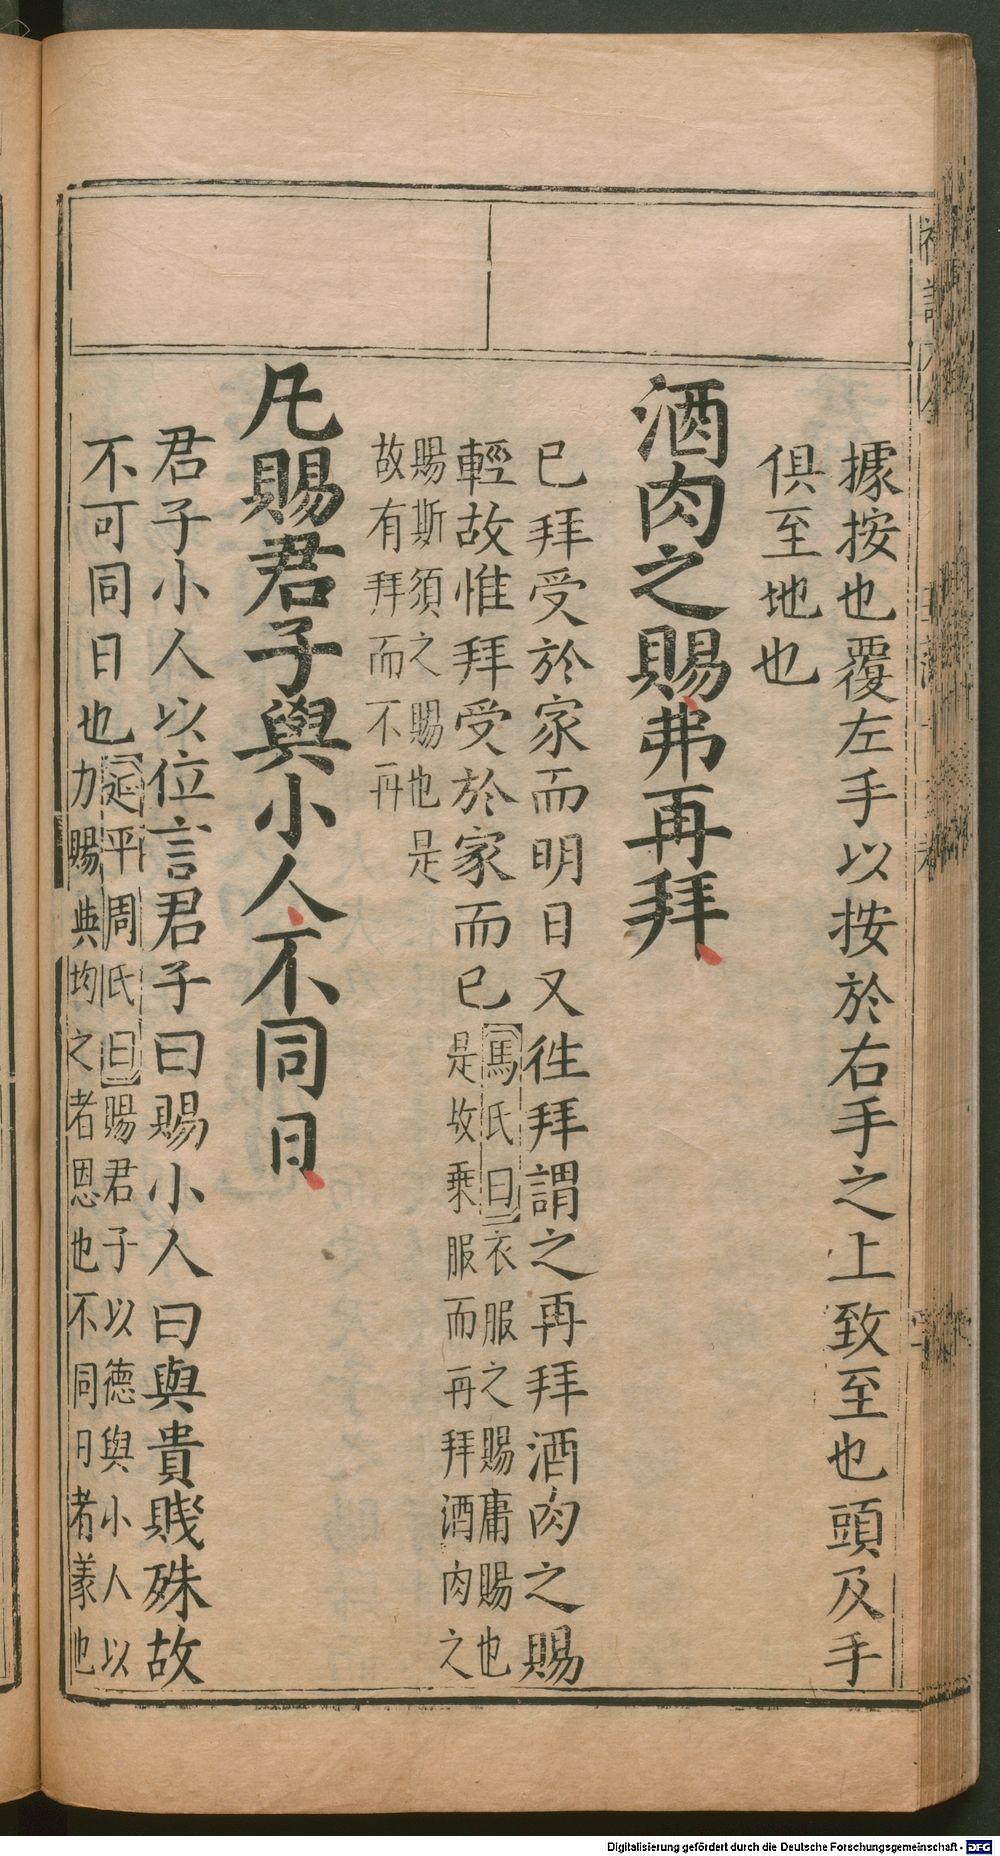 據按也覆左手以按於右手之上致至也頭及手
俱至地也
酒肉之賜弗再拜
已拜受於家而明日又徃拜謂之再拜酒肉之賜
輕故惟拜受於家而已
馬氏曰衣服之賜庸賜也
是故乗服而再拜酒肉之
賜斯須之賜也是
故有拜而不再
凡賜君子與小人不同日
君子小人以位言君子曰賜小人曰與貴賤殊故
不可同日也
延平周氏曰賜君子以德與小人以
力賜與均之者恩也不同日者義也
Digitalisierung gefördert durch die Deutsche Forschungsgemeinschaft - DFG